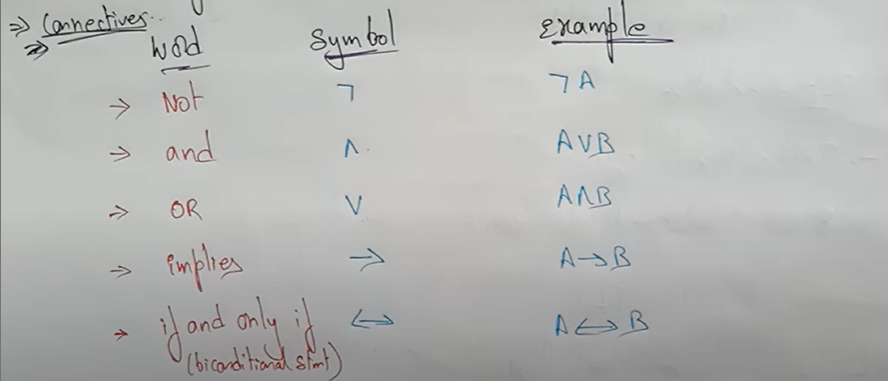 ⇒ Connectives..
⇒ Word Symbol Example
→ Not ¬ ¬A
→ and ∧ A∨B
→ OR ∨ A∧B
→ implies → A→B
→ if and only if ↔ A↔B
(biconditional stmt)